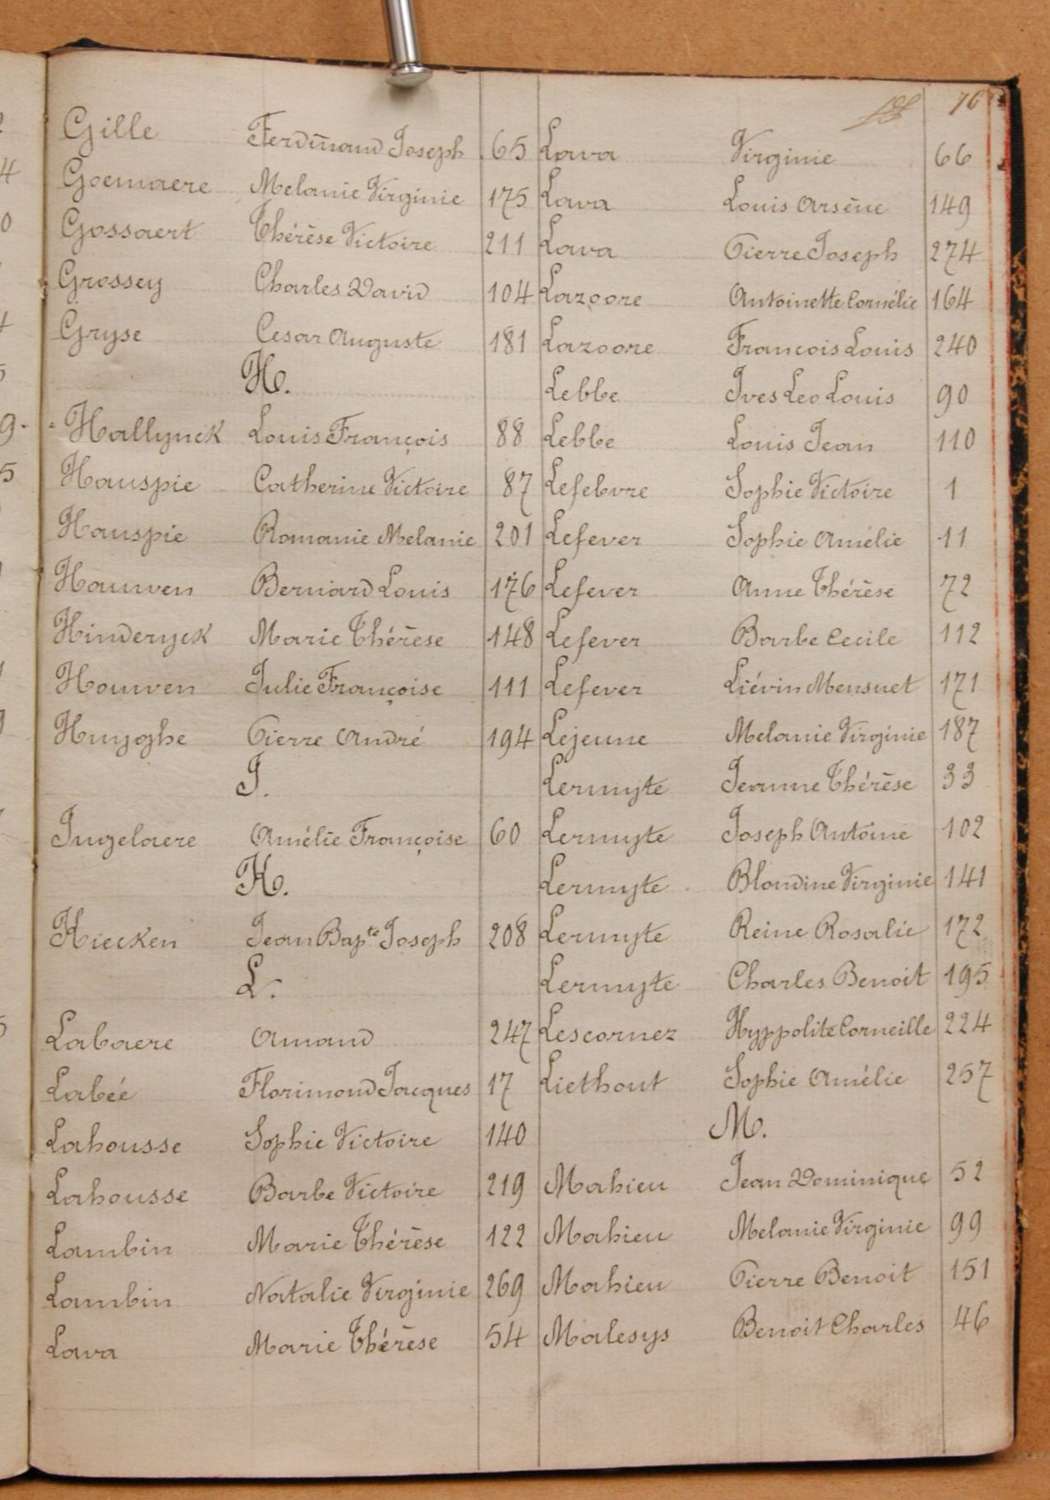 76
Gille Ferdinand Joseph 65
Goemaere Melanie Virginie 175
Gossaert Thérèse Victoire 211
Grossey Charles David 104
Gryse Cesar Auguste 181
H.
Hallynck Louis François 88
Hauspie Catherine Victoire 87
Hauspie Romanie Melanie 201
Hauwen Bernard Louis 176
Hinderyck Marie Thérèse 148
Houwen Julie Françoise 111
Huyghe Pierre André 194
I.
Ingelaere Amélie Françoise 60
K.
Kiecken Jean Bapte Joseph 208
L.
Labaere Amand 247
Labée Florimond Jacques 17
Lahousse Sophie Victoire 140
Lahousse Barbe Victoire 219
Lambin Marie Thérèse 122
Lambin Natalie Virginie 269
Lava Marie Thérèse 54
Lava Virginie 66
Lava Louis Arsène 149
Lava Pierre Joseph 274
Lazoore Antoinette Cornélie 164
Lazoore François Louis 240
Lebbe Ives Leo Louis 90
Lebbe Louis Jean 110
Lefebvre Sophie Victoire 1
Lefever Sophie Amélie 11
Lefever Anne Thérèse 72
Lefever Barbe Cecile 112
Lefever Liévin Mensuet 171
Lejeune Melanie Virginie 187
Lermyte Jeanne Thérèse 33
Lermyte Joseph Antoine 102
Lermyte Blondine Virginie 141
Lermyte Reine Rosalie 172
Lermyte Charles Benoit 195
Lescornez Hyppolite Corneille 224
Liethout Sophie Amélie 257
M.
Mahieu Jean Dominique 52
Mahieu Melanie Virginie 99
Mahieu Pierre Benoit 151
Malesys Benoit Charles 46